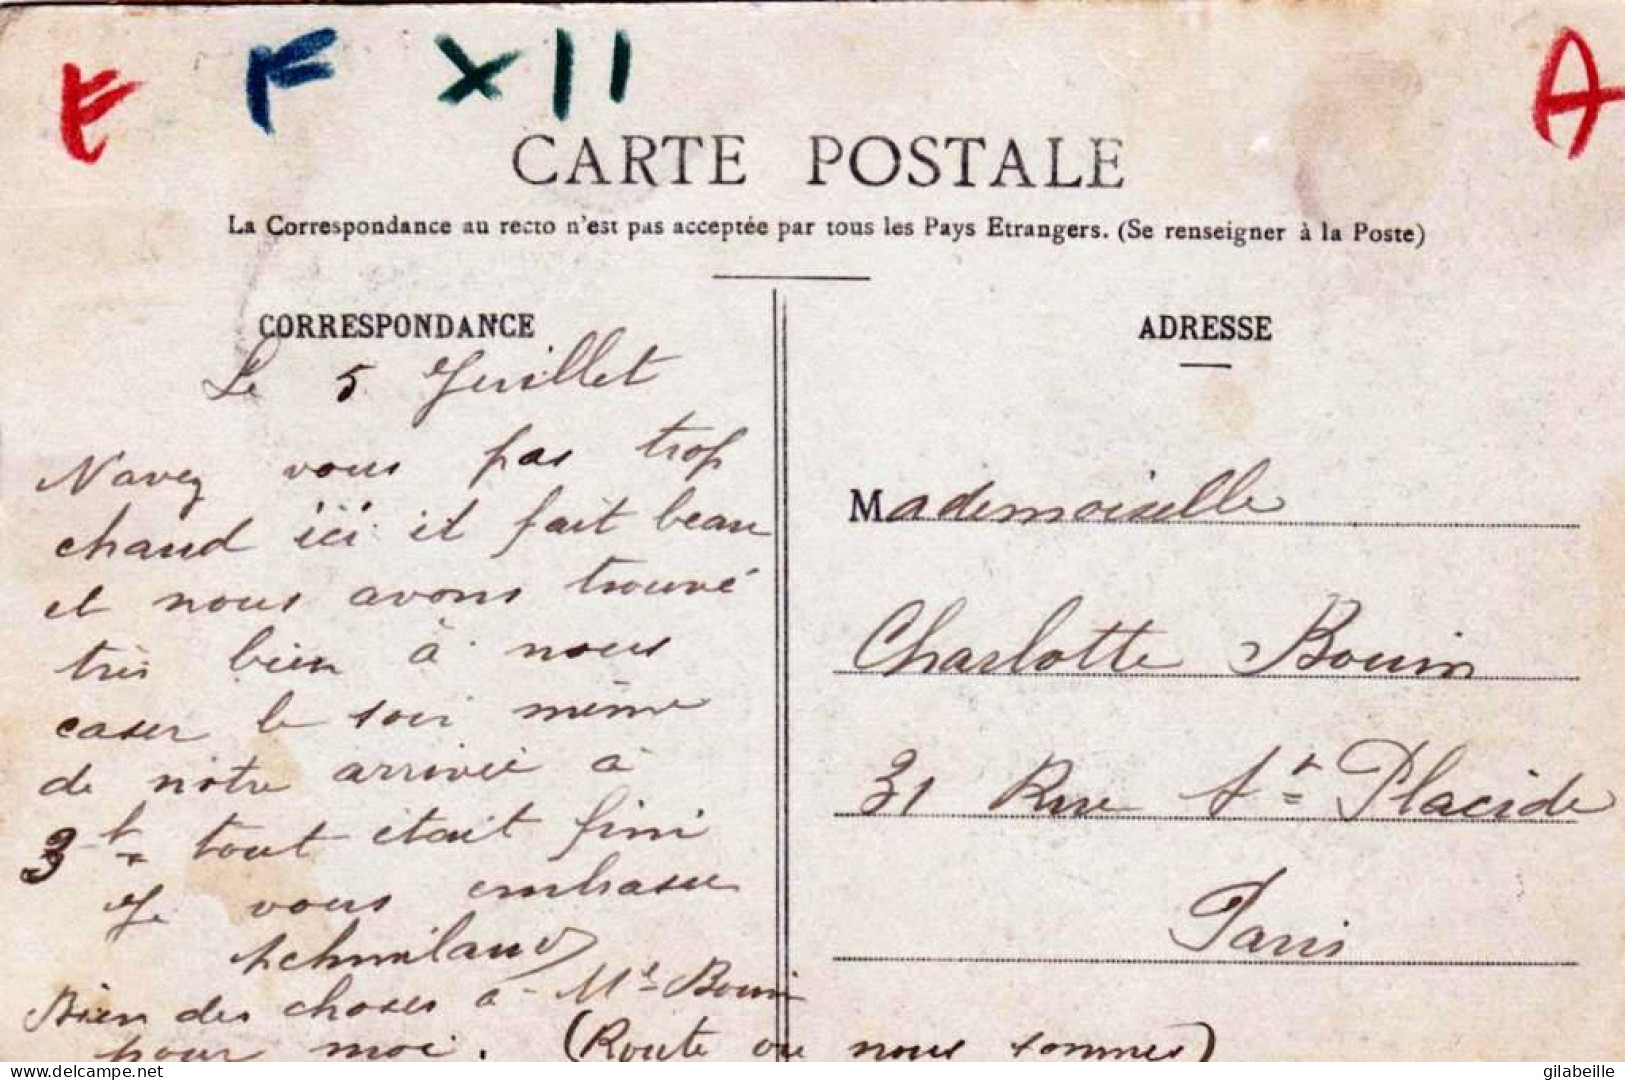 E F XII A
CARTE POSTALE
La Correspondance au recto n'est pas acceptée par tous les Pays Etrangers. (Se renseigner à la Poste)
CORRESPONDANCE
Le 5 Juillet
N'avez vous pas trop
chaud ici il fait beau
et nous avons trouvé
très bien à nous
caser le soir même
de nôtre arrivée à
3h tout était fini
Je vous embrasse
Bien des choses à Me Bouin
pour moi. (Route ou nous sommes)
ADRESSE
Mademoiselle
Charlotte Bouin
31 Rue St Placide
Paris
delcampe.net
gilabeille